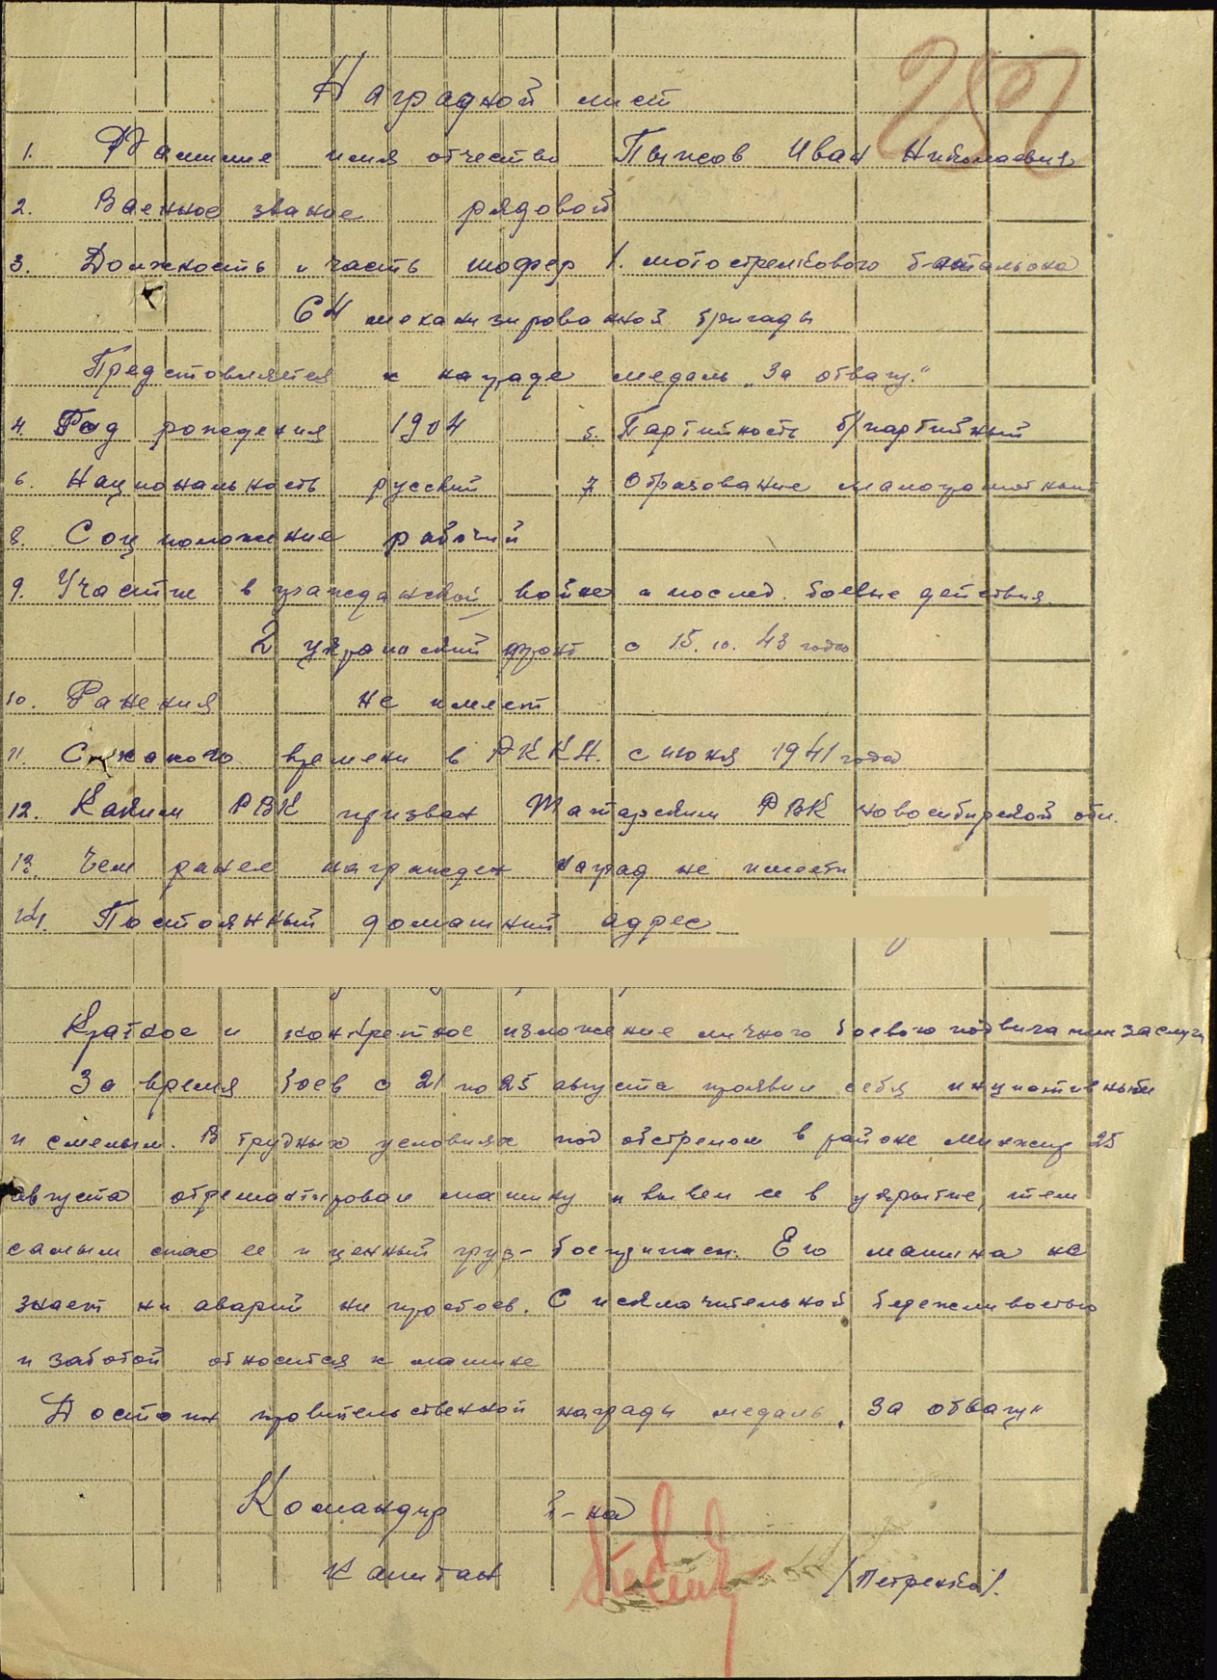 Наградной лист
1. Фамилие имя отчество Пыжов Иван Николаевич
2. Военное звание рядовой
3. Должность и часть шофер 1. мотострелкового батальона
64 механизированной бригады
Представляется к награде медаль „За отвагу."
4. Год рождения 1904 5. Партийность б/партийный
6. Национальность русский 7 Образование малограмотный
8. Соц положение рабочий
9. Участие в гражданской войне и послед. боевые действия.
2 украинский фронт с 15.10.43 года
10. Ранения не имеет
11. С какого времени в РККА. с июня 1941 года
12. Каким РВК призван Татарским РВК новосибирской обл.
13. Чем ранее награжден наград не имеет
14. Постоянный домашний адрес
Краткое и конкретное изложение личного боевого подвига или заслуг
За время боев с 21 по 25 августа проявил себя инициативным
и смелым. В трудных условиях под обстрелом в районе 25
августа отремонтировал машину и вывел ее в укрытие, тем
самым спас ее и ценный груз- боеприпасы. Его машина не
знает ни аварий ни простоев. С исключительной бережливостью
и заботой относится к машине
Достоин правительственной награды медаль „За отвагу"
Командир б-на
капитан /Петренко/.